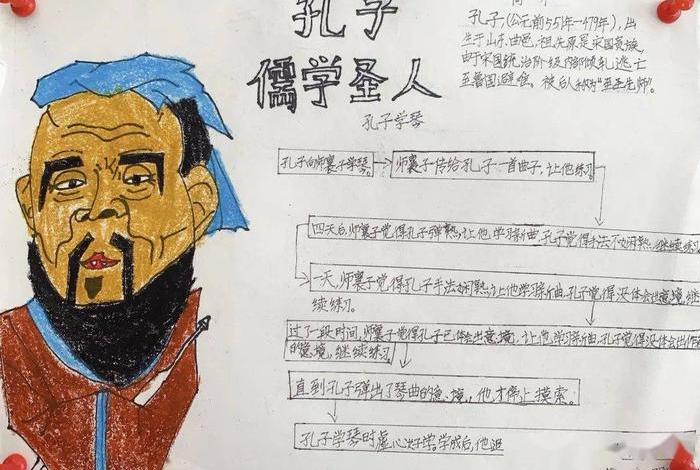 孔子
儒学圣人
孔子学琴
孔子,(公元前551年—479年),出
生于山东曲邑,祖先原是宋国贵族,
由于宋国统治阶级内部倾轧逃亡
至鲁国避难。被后人称为“至圣先师”。
孔子向师襄子学琴。
师襄子传给孔子一首曲子,让他练习
四天后,师襄子觉得孔子弹熟,让他学习新曲,孔子觉得手法不娴熟,继续练习
一天,师襄子觉得孔子手法娴熟,让他学习新曲,孔子觉得没体会出意境,继
续练习。
过了一段时间,师襄子觉得孔子已体会出意境,让他学习新曲,孔子觉得没体会出作
的意境,继续练习
直到孔子弹出了琴曲的意境,他才停止摸索。
孔子学琴时虚心好学。学成后,他退